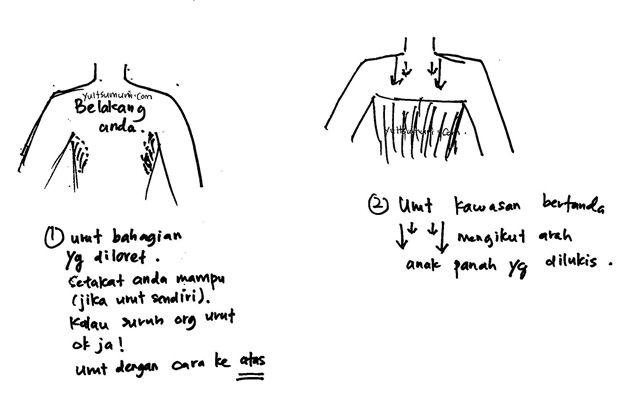 yuitsumuni.com
Belakang
anda.
① urut bahagian
yg diloret.
setakat anda mampu
(jika urut sendiri).
Kalau suruh org urut
ok ja!
urut dengan cara ke atas
yuitsumuni.com
② Urut kawasan bertanda
mengikut arah
anak panah yg dilukis.